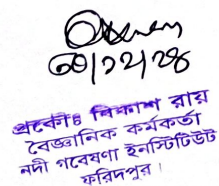 প্রকৌঃ বিকাশ রায়
বৈজ্ঞানিক কর্মকর্তা
নদী গবেষণা ইনস্টিটিউট
ফরিদপুর।